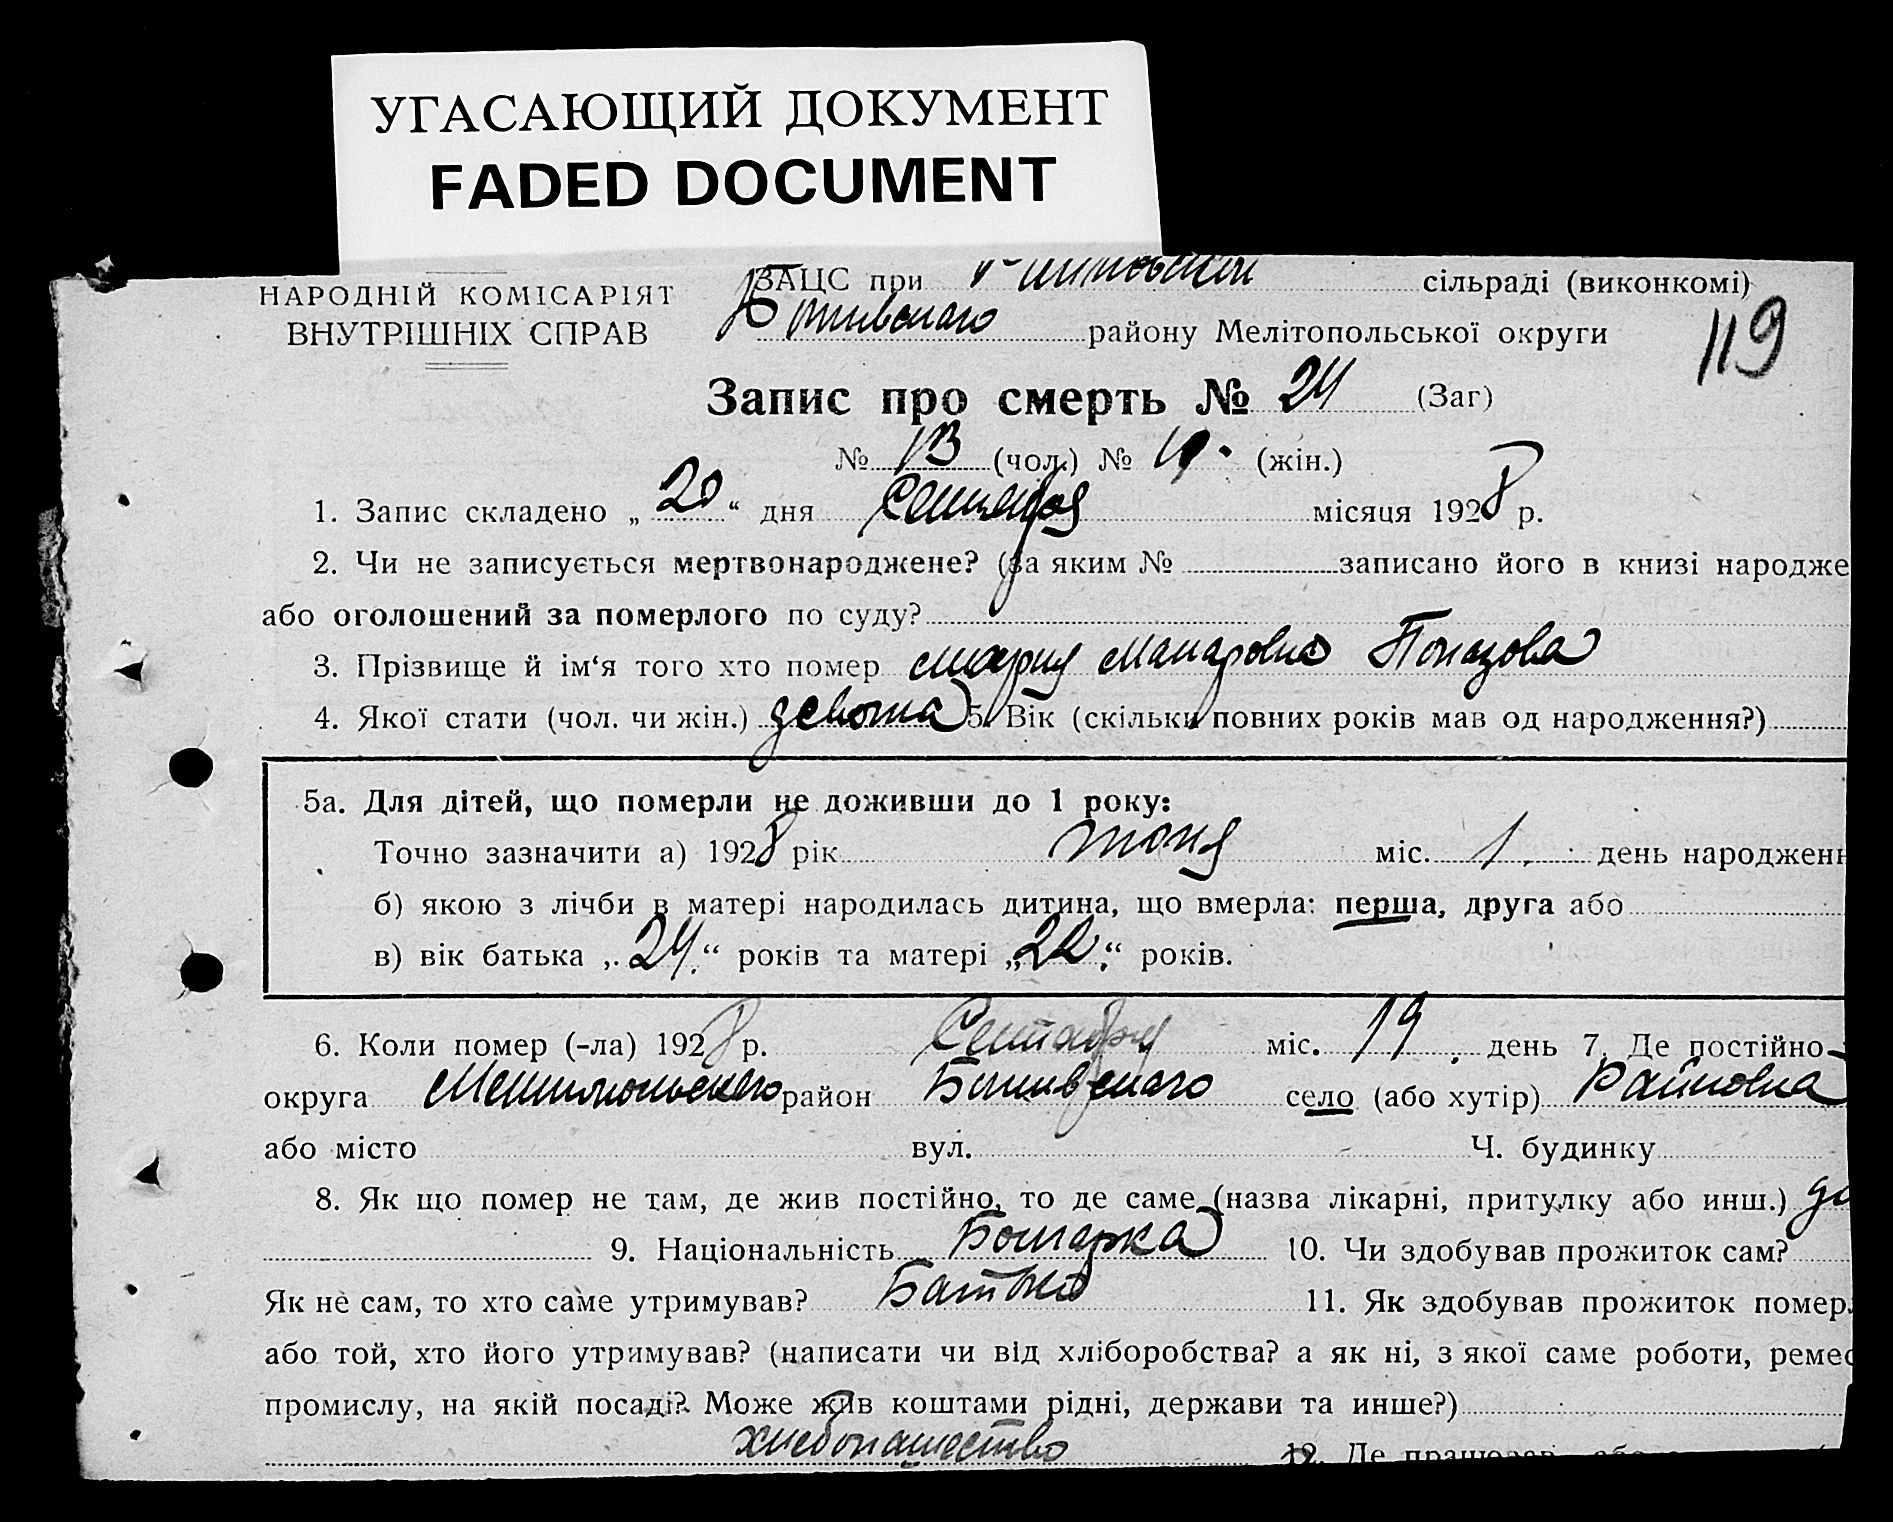 УГАСАЮЩИЙ ДОКУМЕНТ
FADED DOCUMENT
НАРОДНІЙ КОМІСАРІЯТ
ВНУТРІШНІХ СПРАВ
ЗАЦС при сільраді (виконкомі)
району Мелітопольської округи
119
Запис про смерть № 24 (Заг)
№ 13 (чол.) № (жін.)
1. Запис складено „ 20 “ дня Сентября місяця 1928 р.
2. Чи не записується мертвонароджене? (за яким № записано його в книзі народже
або оголошений за померлого по суду?
3. Прізвище й ім‘я того хто помер Мария Макаровна
4. Якої стати (чол. чи жін.) девочка 5. Вік (скільки повних років мав од народження?)
5а. Для дітей, що померли не доживши до 1 року:
Точно зазначити а) 1928 рік июня міс. 1 день народженн
б) якою з лічби в матері народилась дитина, що вмерла: перша, друга або
в) вік батька „ 24 “ років та матері „ 22 “ років.
6. Коли помер (-ла) 1928 р. Сентября міс. 19 день 7. Де постійно
округа Мелитопольского район село (або хутір) Райновка
або місто вул. Ч. будинку
8. Як що помер не там, де жив постійно, то де саме (назва лікарні, притулку або инш.)
9. Національність Болгарка 10. Чи здобував прожиток сам?
Як не сам, то хто саме утримував? Батько 11. Як здобував прожиток помер
або той, хто його утримував? (написати чи від хліборобства? а як ні, з якої саме роботи, ремес
промислу, на якій посаді? Може жив коштами рідні, держави та инше?)
хлебопашество 12. Де працював